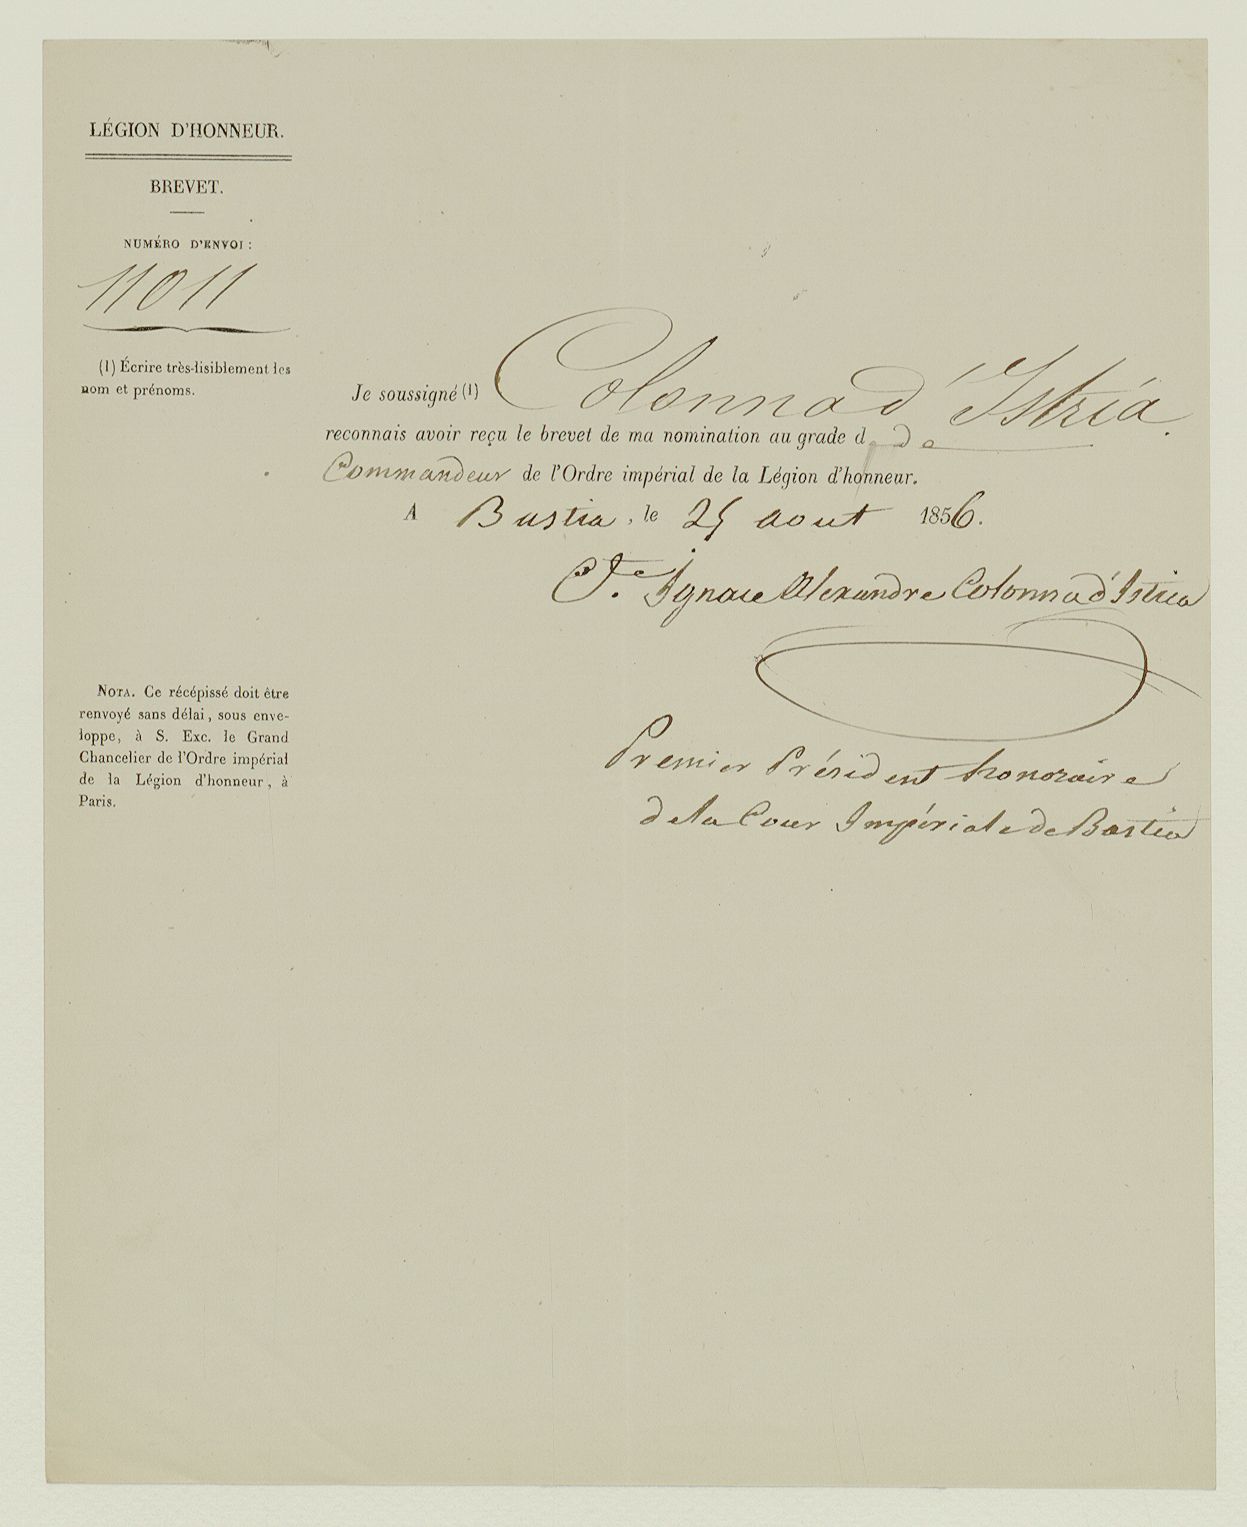 LÉGION D'HONNEUR.
BREVET.
NUMÉRO D'ENVOI :
11011
(1) Écrire très-lisiblement les
nom et prénoms.
Je soussigné (1) Colonna d'Istria.
reconnais avoir reçu le brevet de ma nomination au grade d de
Commandeur de l'Ordre impérial de la Légion d'honneur.
A Bastia, le 25 aout 1856.
Ignace Alexandre Colonna d'Istria
Premier Président honoraire
de la Cour Impériale de Bastia
NOTA. Ce récépissé doit être
renvoyé sans délai, sous enve-
loppe, à S. Exc. le Grand
Chancelier de l'Ordre impérial
de la Légion d'honneur, à
Paris.